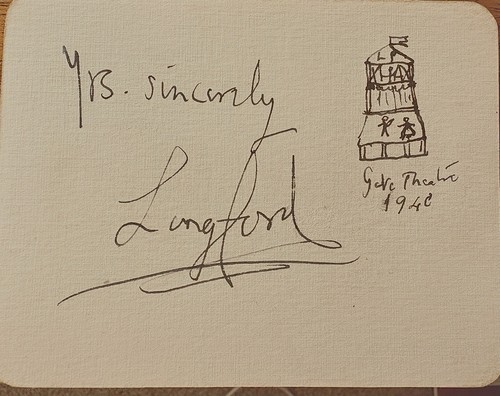 Yrs. sincerely
Longford
Gate Theatre